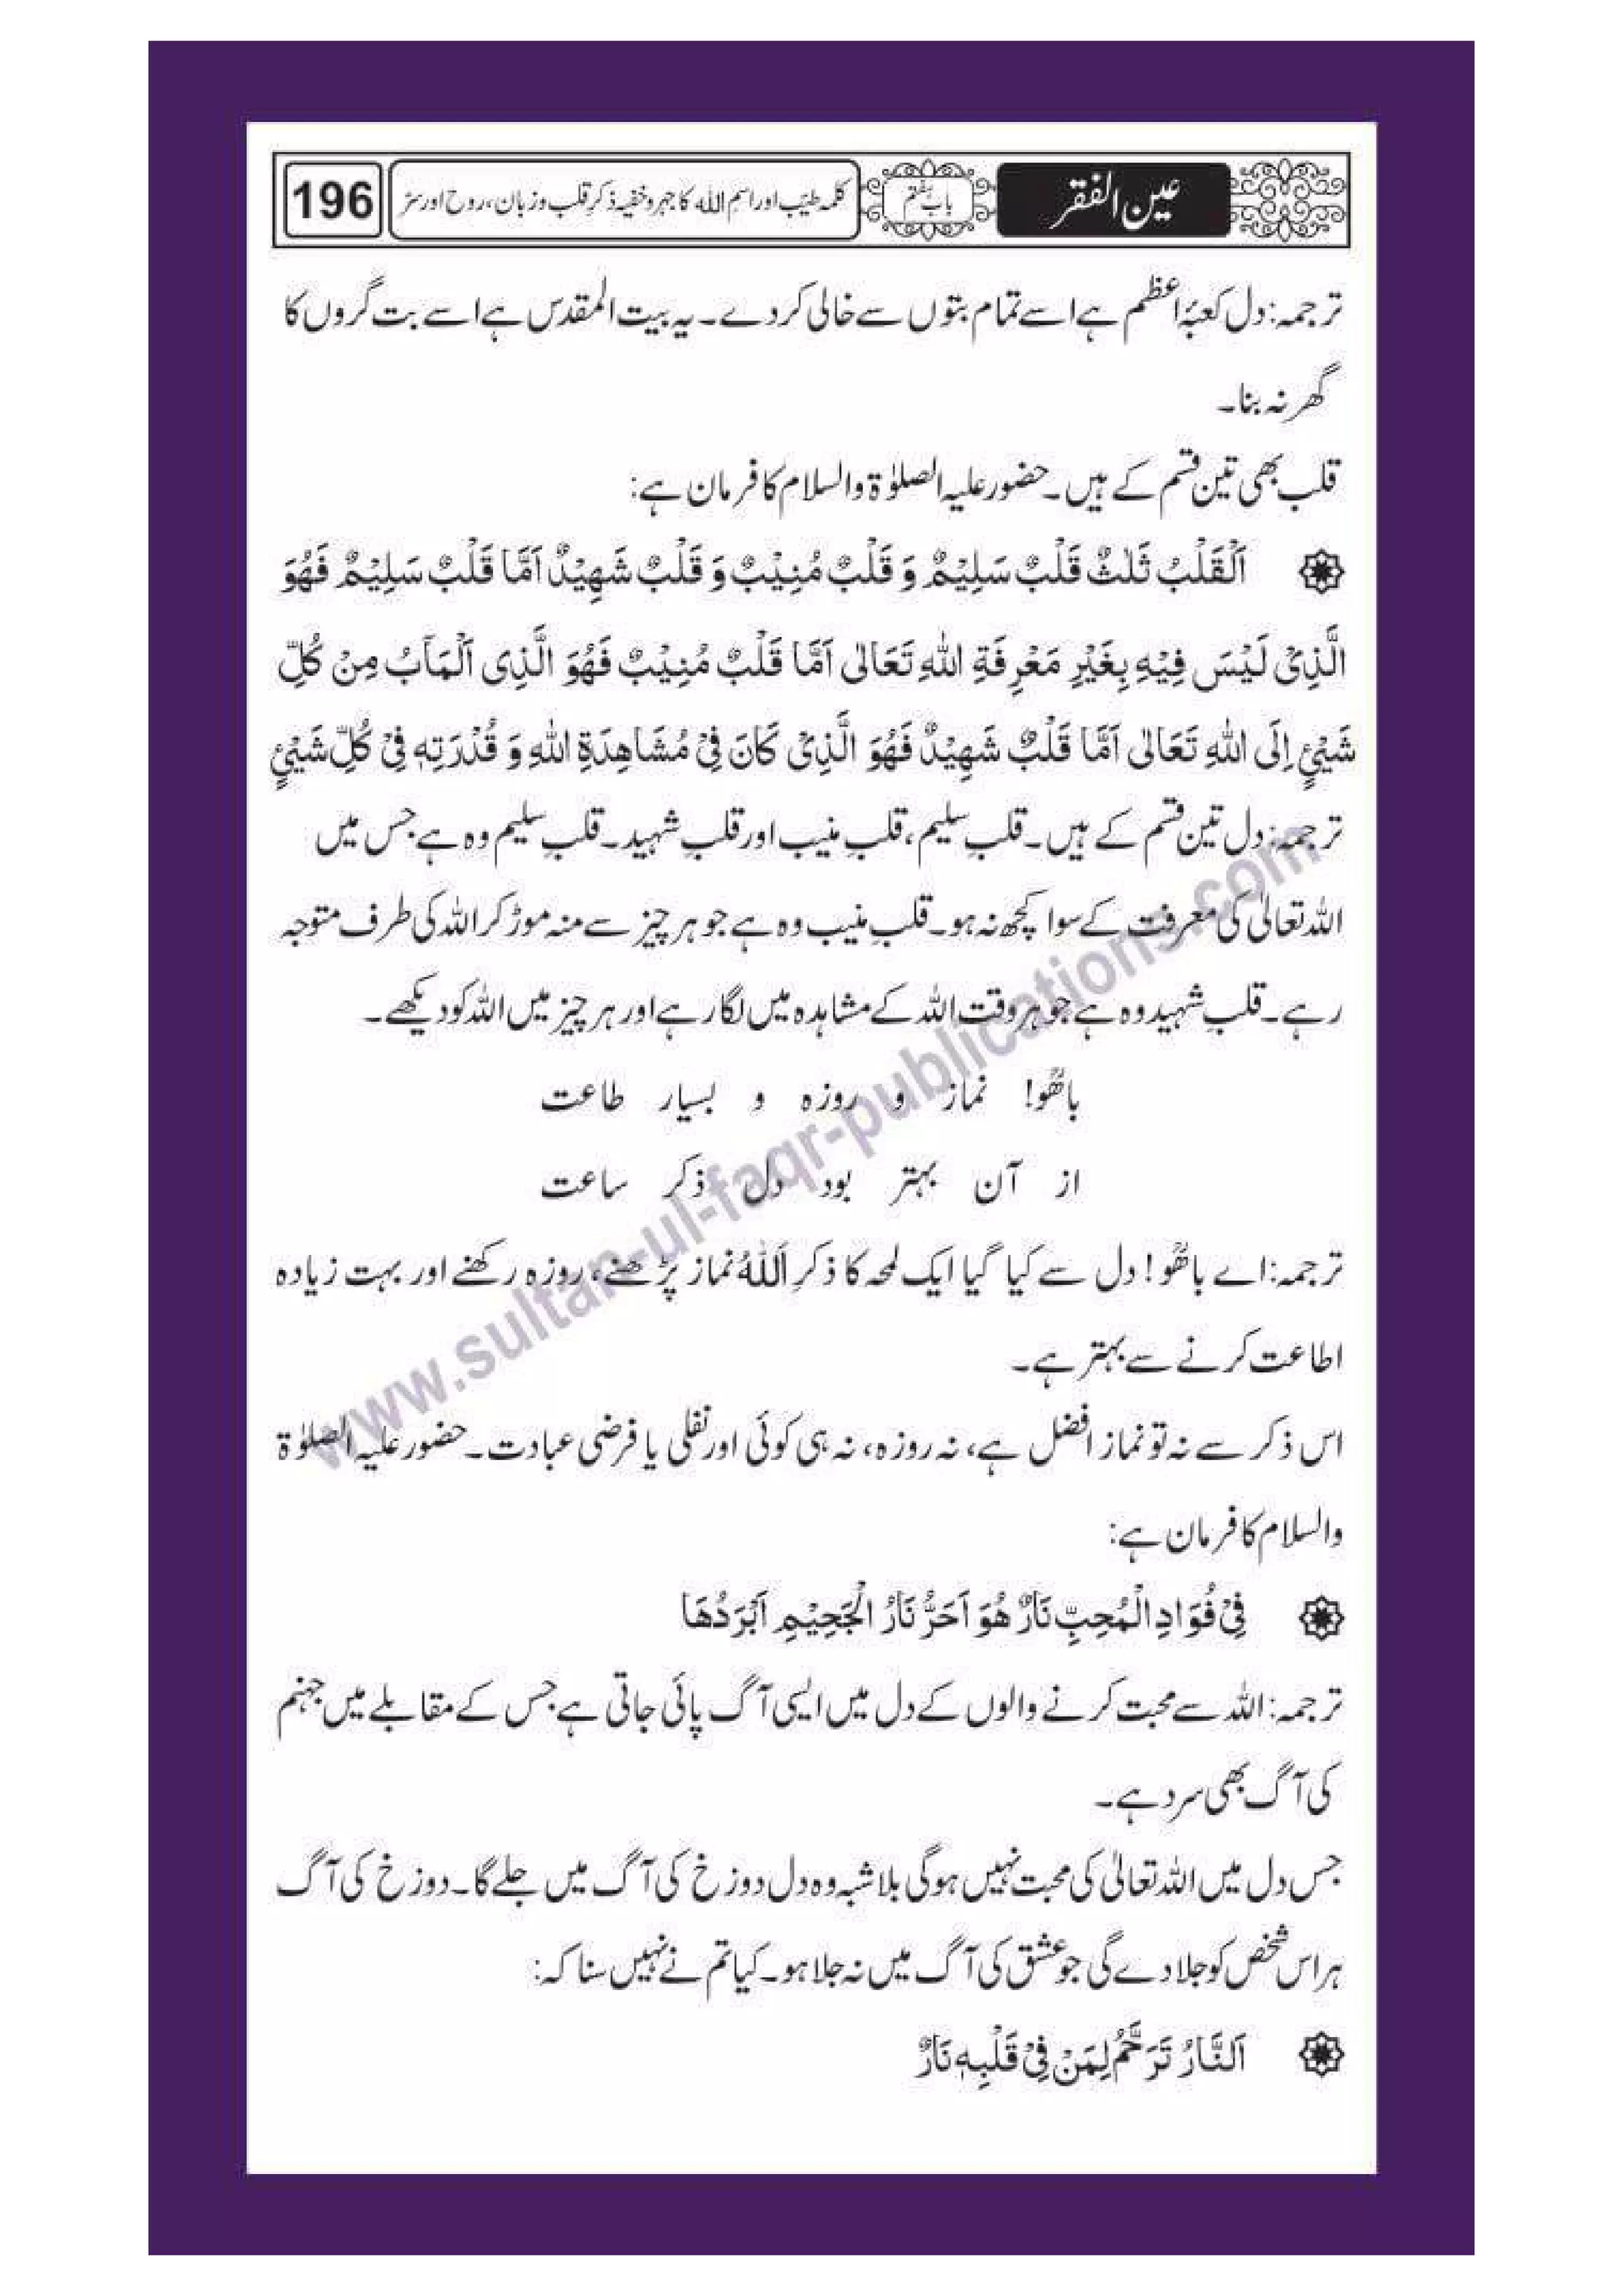 عین الفقر
باب ہفتم
کلمہ طیّب اور اسمِ اللہ کا جہر و خفیہ ذکرِ قلب و زبان، روح اور سِرّ
196
ترجمہ: دل کعبۂ اعظم ہے اسے تمام بتوں سے خالی کر دے۔ یہ بیت المقدس ہے اسے بت گروں کا
گھر نہ بنا۔
قلب بھی تین قسم کے ہیں۔ حضور علیہ الصلوٰۃ والسلام کا فرمان ہے:
اَلْقَلْبُ ثَلٰثٌ قَلْبٌ سَلِیْمٌ وَ قَلْبٌ مُنِیْبٌ وَ قَلْبٌ شَھِیْدٌ اَمَّا قَلْبٌ سَلِیْمٌ فَھُوَ
الَّذِیْ لَیْسَ فِیْہِ بِغَیْرِ مَعْرِفَۃِ اللّٰہِ تَعَالٰی اَمَّا قَلْبٌ مُنِیْبٌ فَھُوَ الَّذِی اَلْمَآبُ مِنْ کُلِّ
شَیْیٍٔ اِلَی اللّٰہِ تَعَالٰی اَمَّا قَلْبٌ شَھِیْدٌ فَھُوَ الَّذِیْ کَانَ فِیْ مُشَاھِدَۃِ اللّٰہِ وَ قُدْرَتِہٖ فِیْ کُلِّ شَیْیٍٔ
ترجمہ: دل تین قسم کے ہیں۔ قلبِ سلیم، قلبِ منیب اور قلبِ شہید۔ قلبِ سلیم وہ ہے جس میں
اللہ تعالیٰ کی معرفت کے سوا کچھ نہ ہو۔ قلبِ منیب وہ ہے جو ہر چیز سے منہ موڑ کر اللہ کی طرف متوجہ
رہے۔ قلبِ شہید وہ ہے جو ہر وقت اللہ کے مشاہدہ میں لگا رہے اور ہر چیز میں اللہ کو دیکھے۔
باھُوؒ! نماز و روزہ و بسیار طاعت
از آن بہتر بود دل ذکر ساعت
ترجمہ: اے باھُوؒ! دل سے کیا گیا ایک لمحہ کا ذکرِ اَللّٰہُ نماز پڑھنے، روزہ رکھنے اور بہت زیادہ
اطاعت کرنے سے بہتر ہے۔
اس ذکر سے نہ تو نماز افضل ہے، نہ روزہ، نہ ہی کوئی اور نفلی یا فرضی عبادت۔ حضور علیہ الصلوٰۃ
والسلام کا فرمان ہے:
فِیْ فُوَادِ الْمُحِبِّ نَارٌ ھُوَ اَحَرُّ نَارُ الْجَحِیْمِ اَبْرَدُھَا
ترجمہ: اللہ سے محبت کرنے والوں کے دل میں ایسی آگ پائی جاتی ہے جس کے مقابلے میں جہنم
کی آگ بھی سرد ہے۔
جس دل میں اللہ تعالیٰ کی محبت نہیں ہوگی بلاشبہ وہ دل دوزخ کی آگ میں جلے گا۔ دوزخ کی آگ
ہر اس شخص کو جلا دے گی جو عشق کی آگ میں نہ جلا ہو۔ کیا تم نے نہیں سنا کہ:
اَلنَّارُ تَرَحَّمُ لِمَنْ فِیْ قَلْبِہٖ نَارٌ
www.sultan-ul-faqr-publications.com